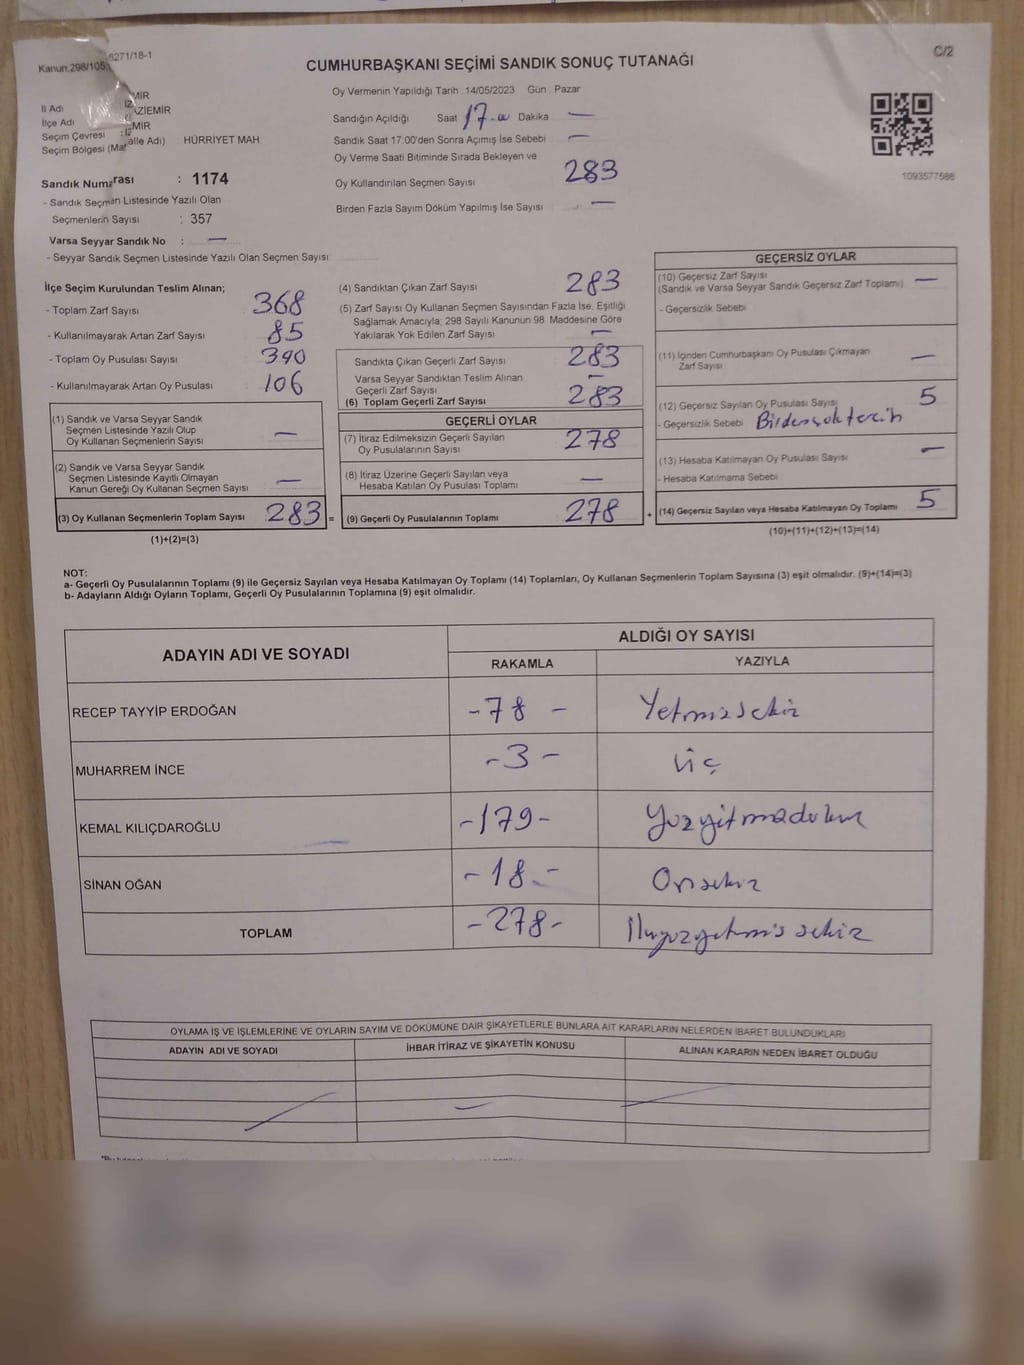 6271/18-1
Kanun.298/105
C/2
CUMHURBAŞKANI SEÇİMİ SANDIK SONUÇ TUTANAĞI
İl Adı
MİR
İlçe Adı
ZİEMİR
Seçim Çevresi : MİR
Seçim Bölgesi (Mahalle Adı) HÜRRİYET MAH.
Sandık Numarası : 1174
- Sandık Seçmen Listesinde Yazılı Olan
Seçmenlerin Sayısı : 357
Varsa Seyyar Sandık No : —
- Seyyar Sandık Seçmen Listesinde Yazılı Olan Seçmen Sayısı
Oy Vermenin Yapıldığı Tarih 14/05/2023 Gün Pazar
Sandığın Açıldığı Saat 17.00 Dakika —
Sandık Saat 17:00'den Sonra Açımış İse Sebebi —
Oy Verme Saati Bitiminde Sırada Bekleyen ve
Oy Kullandırılan Seçmen Sayısı 283
Birden Fazla Sayım Döküm Yapılmış İse Sayısı —
1093577588
İlçe Seçim Kurulundan Teslim Alınan;
- Toplam Zarf Sayısı 368
- Kullanılmayarak Artan Zarf Sayısı 85
- Toplam Oy Pusulası Sayısı 390
- Kullanılmayarak Artan Oy Pusulası 106
(1) Sandık ve Varsa Seyyar Sandık
Seçmen Listesinde Yazılı Olup
Oy Kullanan Seçmenlerin Sayısı —
(2) Sandık ve Varsa Seyyar Sandık
Seçmen Listesinde Kayıtlı Olmayan
Kanun Gereği Oy Kullanan Seçmen Sayısı —
(3) Oy Kullanan Seçmenlerin Toplam Sayısı 283 =
(1)+(2)=(3)
(4) Sandıktan Çıkan Zarf Sayısı 283
(5) Zarf Sayısı Oy Kullanan Seçmen Sayısından Fazla İse, Eşitliği
Sağlamak Amacıyla, 298 Sayılı Kanunun 98. Maddesine Göre
Yakılarak Yok Edilen Zarf Sayısı —
Sandıkta Çıkan Geçerli Zarf Sayısı 283
Varsa Seyyar Sandıktan Teslim Alınan
Geçerli Zarf Sayısı —
(6) Toplam Geçerli Zarf Sayısı 283
GEÇERLİ OYLAR
(7) İtiraz Edilmeksizin Geçerli Sayılan
Oy Pusulalarının Sayısı 278
(8) İtiraz Üzerine Geçerli Sayılan veya
Hesaba Katılan Oy Pusulası Toplamı —
(9) Geçerli Oy Pusulalarının Toplamı 278 +
GEÇERSİZ OYLAR
(10) Geçersiz Zarf Sayısı
(Sandık ve Varsa Seyyar Sandık Geçersiz Zarf Toplamı) —
- Geçersizlik Sebebi
(11) İçinden Cumhurbaşkanı Oy Pusulası Çıkmayan
Zarf Sayısı —
(12) Geçersiz Sayılan Oy Pusulası Sayısı 5
- Geçersizlik Sebebi Birden çok tercih
(13) Hesaba Katılmayan Oy Pusulası Sayısı —
- Hesaba Katılmama Sebebi
(14) Geçersiz Sayılan veya Hesaba Katılmayan Oy Toplamı 5
(10)+(11)+(12)+(13)=(14)
NOT:
a- Geçerli Oy Pusulalarının Toplamı (9) ile Geçersiz Sayılan veya Hesaba Katılmayan Oy Toplamı (14) Toplamları, Oy Kullanan Seçmenlerin Toplam Sayısına (3) eşit olmalıdır. (9)+(14)=(3)
b- Adayların Aldığı Oyların Toplamı, Geçerli Oy Pusulalarının Toplamına (9) eşit olmalıdır.
ADAYIN ADI VE SOYADI ALDIĞI OY SAYISI
RAKAMLA YAZIYLA
RECEP TAYYİP ERDOĞAN -78- Yetmişsekiz
MUHARREM İNCE -3- üç
KEMAL KILIÇDAROĞLU -179- Yüzyetmişdokuz
SİNAN OĞAN -18- Onsekiz
TOPLAM -278- İkiyüzyetmiş sekiz
OYLAMA İŞ VE İŞLEMLERİNE VE OYLARIN SAYIM VE DÖKÜMÜNE DAİR ŞİKAYETLERLE BUNLARA AİT KARARLARIN NELERDEN İBARET BULUNDUKLARI
ADAYIN ADI VE SOYADI İHBAR İTİRAZ VE ŞİKAYETİN KONUSU ALINAN KARARIN NEDEN İBARET OLDUĞU